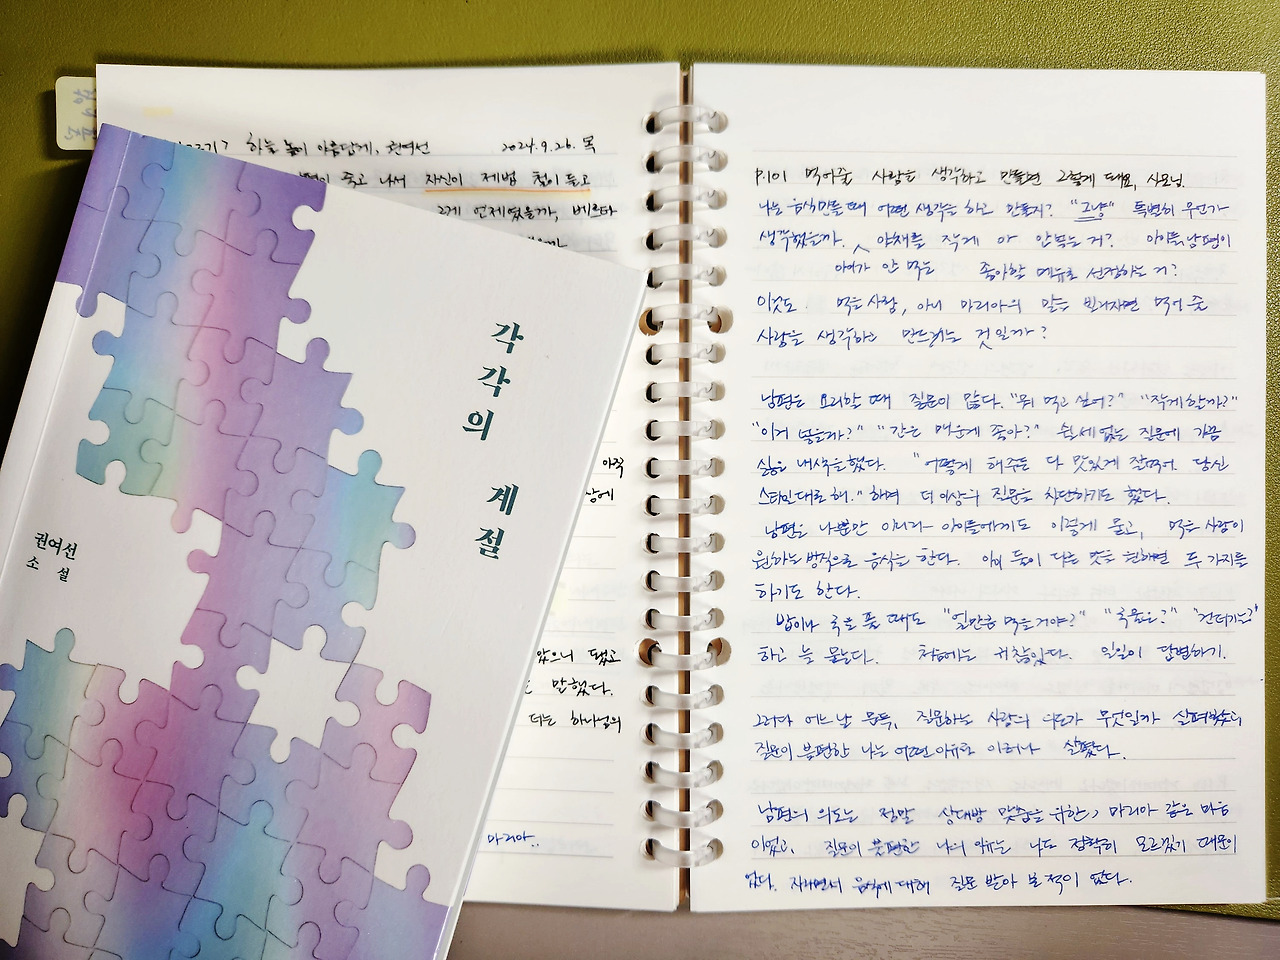 각각의 계절
권여선
소설
하늘 높이 아름답게, 권여선 2024.9.26. 목
죽고 나서 자신이 제법 철이 들고
언제였을까, 베르타
아직
았으니 됐고
말했다.
더는 하나님의
마리아..
P.101 먹어줄 사람을 생각하고 만들면 그렇게 돼요, 사모님.
나는 음식만들 때 어떤 생각을 하고 만들지? "그냥" 특별히 무언가
생각했을까. 야채를 작게 아 안 먹는 거? 아이들, 남편이
아이가 안 먹는 좋아할 메뉴로 선정하는 거?
이것도 먹는 사람, 아니 마리아의 말을 빌리자면 먹어 줄
사람을 생각하고 만드는 것일까?
남편은 요리할 때 질문이 많다. "뭐 먹고 싶어?" "작게 할까?"
"이거 넣을까?" "간은 매운게 좋아?" 쉴 새 없는 질문에 가끔
싫은 내색을 했다. "어떻게 해줘도 다 맛있게 잘 먹어. 당신
스타일대로 해." 하며 더 이상의 질문을 차단하기도 했다.
남편은 나뿐만 아니라 아이들에게도 이렇게 묻고, 먹는 사람이
원하는 방식으로 음식을 한다. 아이 둘이 다른 맛을 원하면 두 가지를
하기도 한다.
밥이나 국을 풀 때도 "얼만큼 먹을거야?" "국물은?" "건더기는?"
하고 늘 묻는다. 처음에는 귀찮았다. 일일이 답변하기.
그러다 어느날 문득, 질문하는 사람의 의도가 무엇일까 살펴봤고
질문이 불편한 나는 어떤 이유로 이러나 살폈다.
남편의 의도는 정말 상대방 맞춤을 위한, 마리아 같은 마음
이었고, 질문이 불편한 나의 이유는 나도 정확히 모르겠기 때문이
었다. 자라면서 음식에 대해 질문 받아 본 적이 없다.